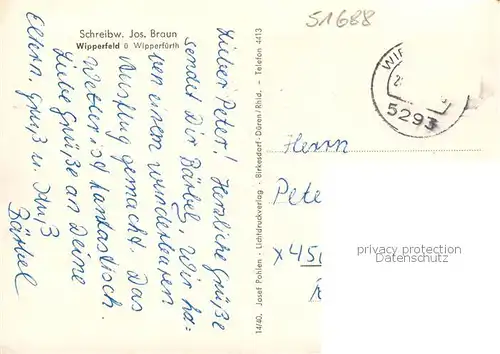 Schreibw. Jos. Braun
Wipperfeld ü Wipperfürth
51688
Lieber Peter! Herzliche Grüße
sendet Dir Bärbel. Wir ha-
ben einen wunderbaren
Ausflug gemacht. Das
Wetter ist fantastisch.
Liebe Grüße an Deine
Eltern. Gruß u. Kuß
Bärbel
14/40. Josef Pohlen - Lichtdruckverlag - Birkesdorf-Düren/Rhld. - Telefon 4413
WI
5293
Herrn
Pete
x 45
privacy protection
Datenschutz